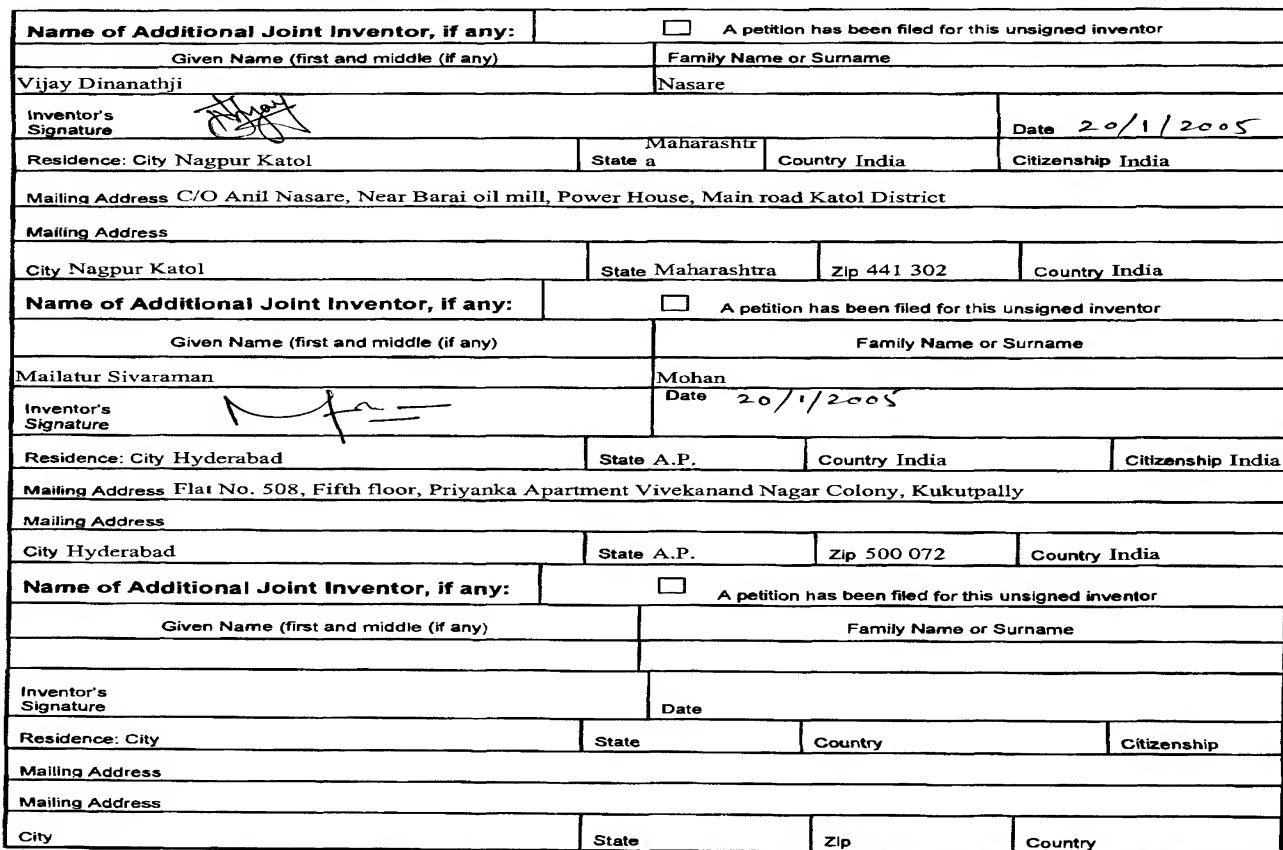 Name of Additional Joint Inventor, if any: A petition has been filed for this unsigned inventor
Given Name (first and middle (if any) Family Name or Surname
Vijay Dinanathji Nasare
Inventor's
Signature Date 20/1/2005
Residence: City Nagpur Katol State Maharashtr
a Country India Citizenship India
Mailing Address C/O Anil Nasare, Near Barai oil mill, Power House, Main road Katol District
Mailing Address
City Nagpur Katol State Maharashtra Zip 441 302 Country India
Name of Additional Joint Inventor, if any: A petition has been filed for this unsigned inventor
Given Name (first and middle (if any) Family Name or Surname
Mailatur Sivaraman Mohan
Inventor's Date 20/1/2005
Signature
Residence: City Hyderabad State A.P. Country India Citizenship India
Mailing Address Flat No. 508, Fifth floor, Priyanka Apartment Vivekanand Nagar Colony, Kukutpally
Mailing Address
City Hyderabad State A.P. Zip 500 072 Country India
Name of Additional Joint Inventor, if any: A petition has been filed for this unsigned inventor
Given Name (first and middle (if any) Family Name or Surname
Inventor's
Signature Date
Residence: City State Country Citizenship
Mailing Address
Mailing Address
City State Zip Country